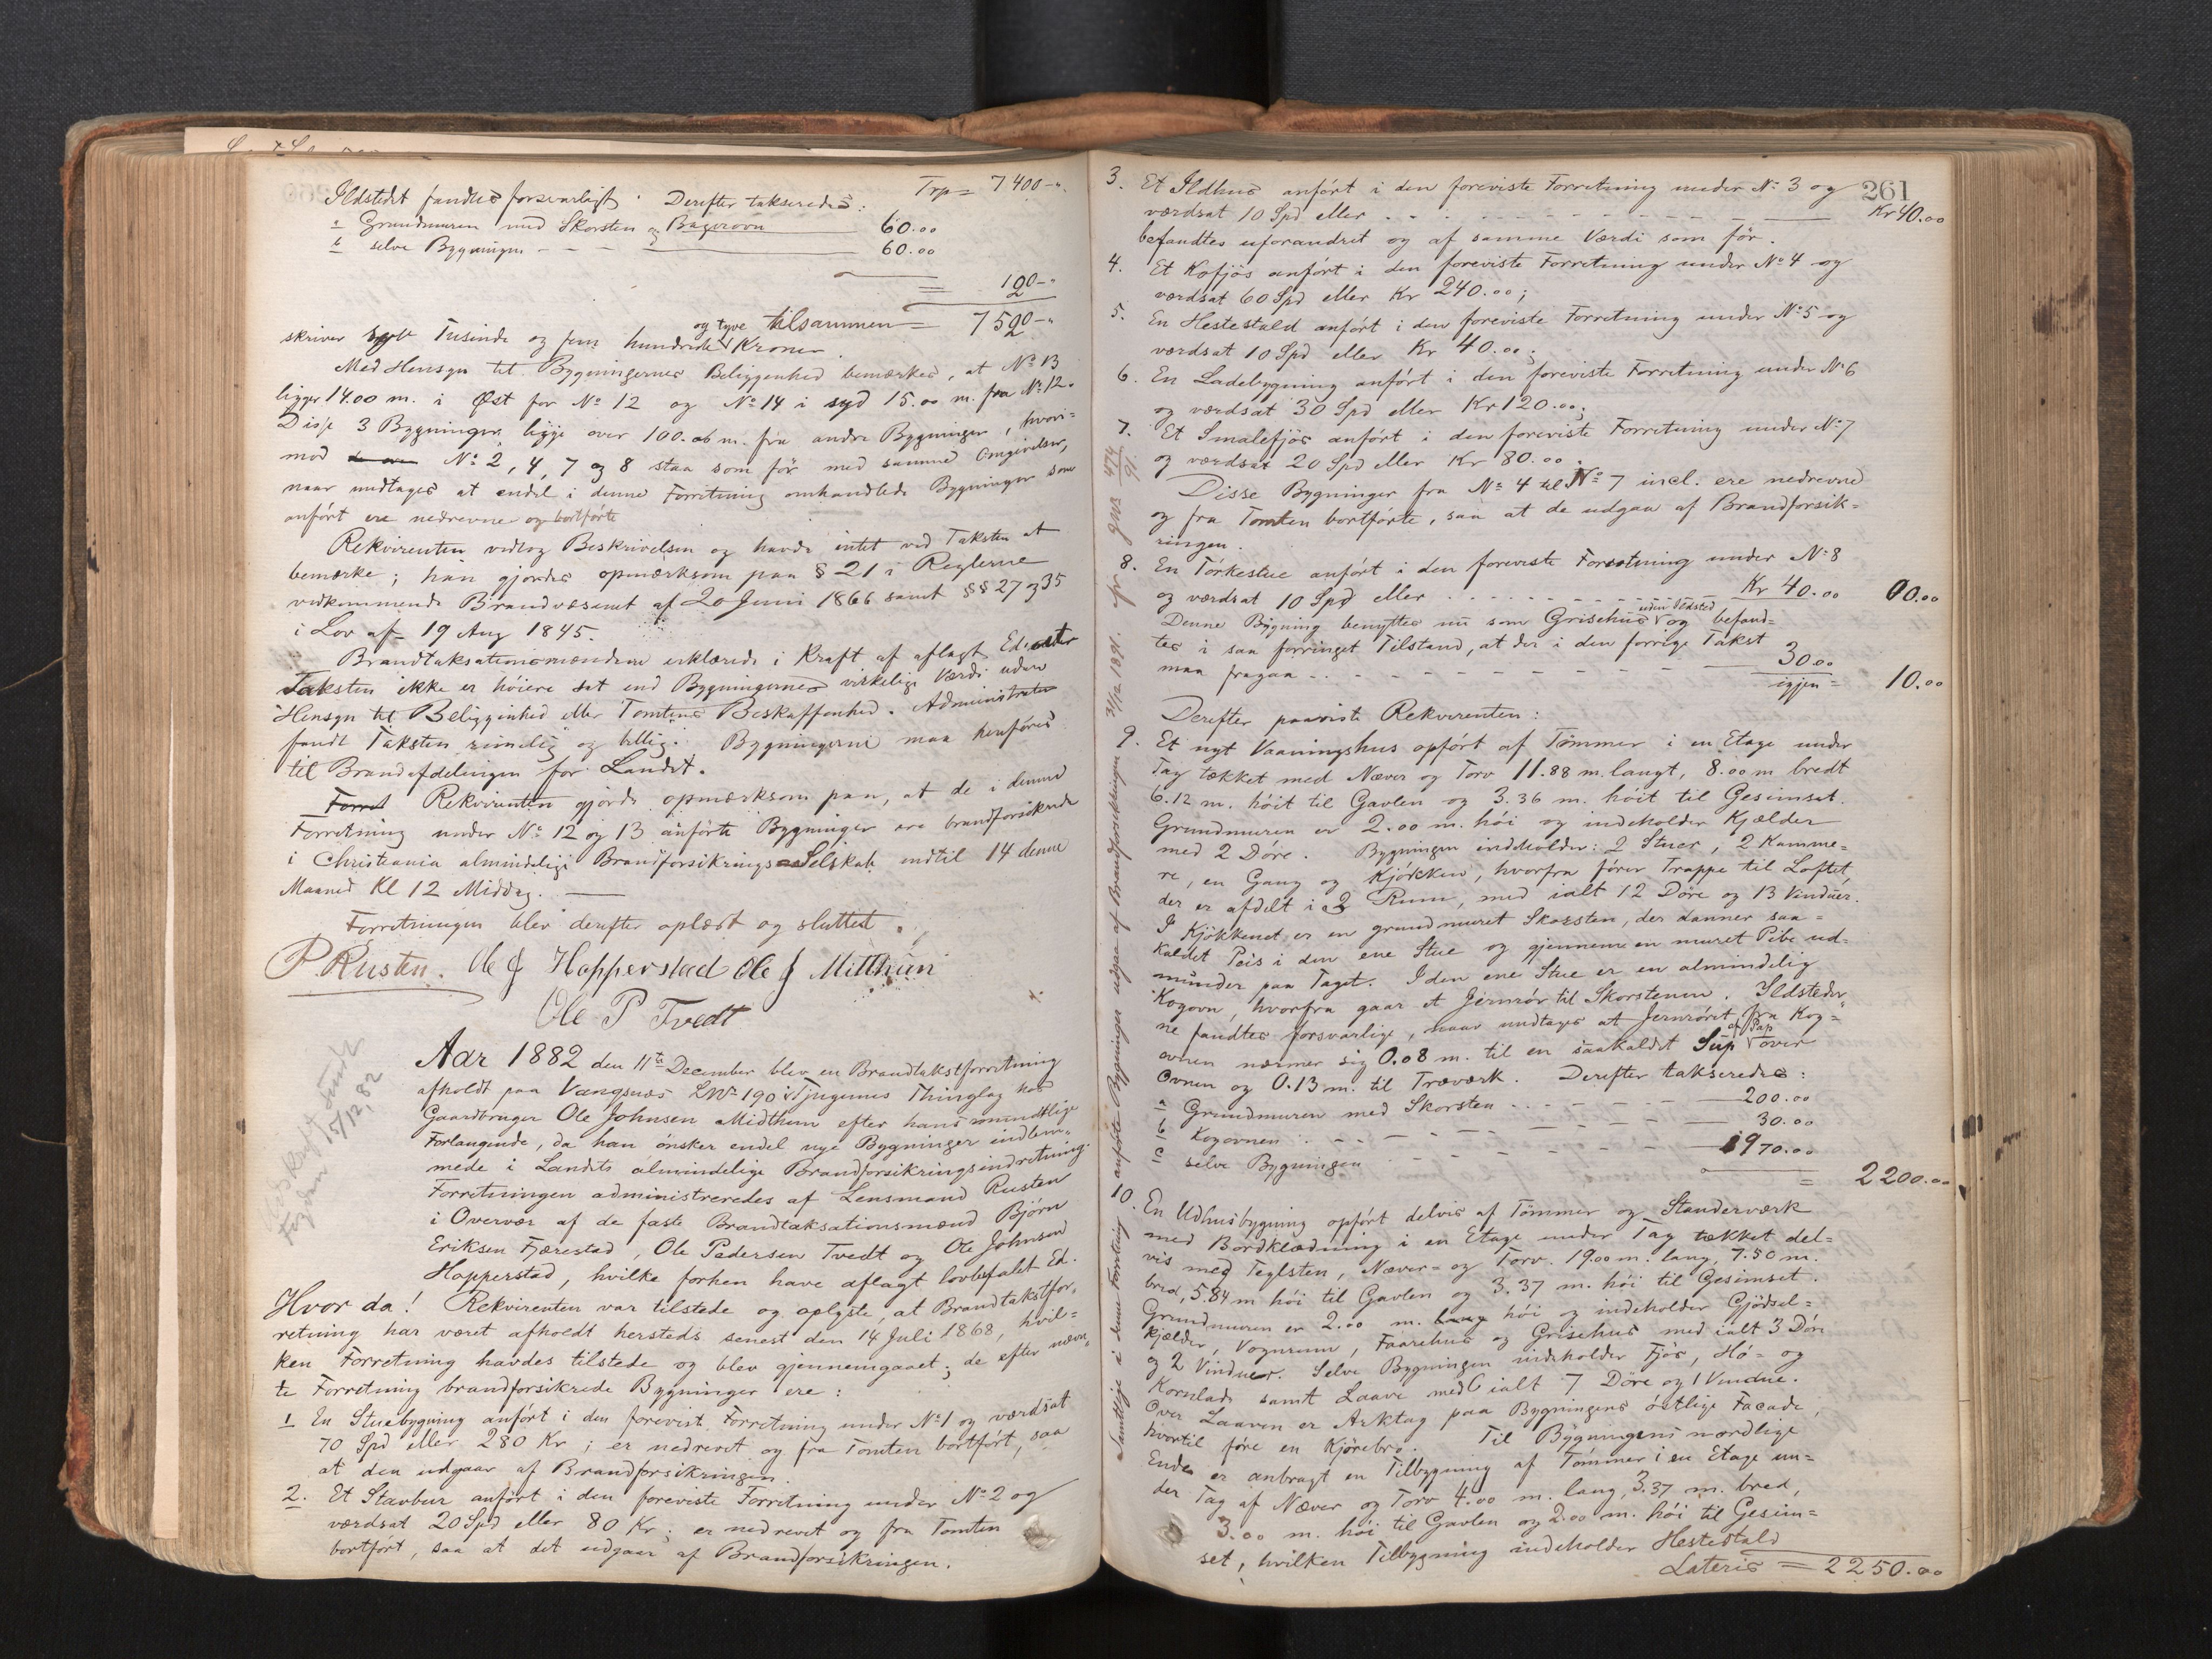 Trp = 7400-"
Ildstedet fandtes forsvarligt. Derefter takseredes:
a Grundmuren med Skorsten og Bagerovn 60.00
b selve Bygningen - - 60.00
= 120-"
og tyve tilsammen = 7520-"
skriver syv Tusinde og fem hundrede Kroner.
Med Hensyn til Bygningernes Beliggenhed bemærkes, at No 13
ligger 14.00 m. i Øst for No 12 og No 14 i syd 15.00 m. fra No 12.
Disse 3 Bygninger ligge over 100.00 m. fra andre Bygninger, hvori=
mod No 2, 4, 7 og 8 staa som før med samme Omgivelser,
naar undtages at endel i denne Forretning omhandlede Bygninger som
anført ere nedrevne og bortførte
Rekvirenten vedtog Beskrivelsen og havde intet ved Taksten at
bemærke; han gjordes opmærksom paa § 21 i Reglerne
vedkommende Brandvæsenet af 20 Juni 1866 samt §§ 27 og 35
i Lov af 19 Aug 1845.
Brandtaksationsmændene erklærede i Kraft af aflagt Ed, at
Taksten ikke er høiere sat end Bygningernes virkelige Værdi uden
Hensyn til Beliggenhed eller Tomtens Beskaffenhed. Administrator
fandt Taksten rimelig og billig. Bygningerne maa henføres
til Brandafdelingen for Landet.
Forret Rekvirenten gjorde opmærksom paa, at de i denne
Forretning under No 12 og 13 anførte Bygninger ere brandforsikrede
i Christiania almindelige Brandforsikrings-Selskab indtil 14 denne
Maaned Kl 12 Middag.
Forretningen blev derefter oplæst og sluttet.
P. Rusten. Ole J Hopperstad Ole J Mitthun
Ole P Tvedt
Udskrift sendt
Fogden 15/12, 82
Aar 1882 den 11te December blev en Brandtakstforretning
afholdt paa Vangsnæs LNo 190 i Tjugums Thinglag hos
Gaardbruger Ole Johnsen Midthun efter hans mundtlige
Forlangende, da han ønsker endel nye Bygninger indlem-
mede i Landets almindelige Brandforsikringsindretning.
Forretningen administreredes af Lensmand Rusten
i Overvær af de faste Brandtaksationsmænd Bjørn
Eriksen Fjærestad, Ole Pedersen Tvedt og Ole Johnsen
Hopperstad, hvilke forhen have aflagt lovbefalet Ed.
Hvor da! Rekvirenten var tilstede og oplyste, at Brandtakstfor,
retning har været afholdt hersteds senest den 14 Juli 1868, hvil=
ken Forretning havdes tilstede og blev gjennemgaaet; de efter nævn,
te Forretning brandforsikrede Bygninger ere:
1 En Stuebygning anført i den foreviste Forretning under No 1 og værdsat
70 Spd eller 280 Kr; er nedrevet og fra Tomten bortført, saa
at den udgaar af Brandforsikringen.
2. Et Stavbur anført i den foreviste Forretning under No 2 og
værdsat 20 Spd eller 80 Kr; er nedrevet og fra Tomten
bortført, saa at det udgaar af Brandforsikringen.
261
3. Et Ildhus anført i den foreviste Forretning under No 3 og
værdsat 10 Spd eller - - - Kr 40.00
befandtes uforandret og af samme Værdi som før.
4. Et Kofjøs anført i den foreviste Forretning under No 4 og
værdsat 60 Spd eller Kr 240.00;
5. En Hestestald anført i den foreviste Forretning under No 5 og
værdsat 10 Spd eller Kr 40.00;
6. En Ladebygning anført i den foreviste Forretning under No 6
og værdsat 30 Spd eller Kr 120.00;
7. Et Smalefjøs anført i den foreviste Forretning under No 7
og værdsat 20 Spd eller Kr 80.00.
Disse Bygninger fra No 4 til No 7 incl. ere nedrevne
og fra Tomten bortførte, saa at de udgaa af Brandforsik=
ringen.
8. En Tørkestue anført i den foreviste Forretning under No 8
og værdsat 10 Spd eller - - - Kr 40.00 00.00
Denne Bygning benyttes nu som Grisehus uden Ildsted og befand=
tes i saa forringet Tilstand, at der i den forrige Takst
maa fragaa - - - 30.00
igjen = 10.00
Derefter paaviste Rekvirenten:
9. Et nyt Vaaningshus opført af Tømmer i en Etage under
Tag tækket med Næver og Torv 11.88 m. langt, 8.00 m bredt
6.12 m. høit til Gavlen og 3.36 m. høit til Gesimset.
Grundmuren er 2.00 m. høi og indeholder Kjælder
med 2 Døre. Bygningen indeholder: 2 Stuer, 2 Kamme=
re, en Gang og Kjøkken, hvorfra fører Trappe til Loftet,
der er afdelt i 2 Rum, med ialt 12 Døre og 13 Vinduer.
I Kjøkkenet er en grundmuret Skorsten, der danner saa=
kaldet Peis i den ene Stue og gjennem en muret Pibe ud=
munder paa Taget. I den ene Stue er en almindelig
Kogovn, hvorfra gaar et Jernrør til Skorstenen. Ildsteder,
ne fandtes forsvarlige, naar undtages at Jernrøret fra Kog=
ovnen nærmer sig 0.08 m. til en saakaldet Sup af Pap over
Ovnen og 0.13 m. til Træværk. Derefter takseredes:
a Grundmuren med Skorsten - - - 200.00
b Kogovnen - - - 30.00
c selve Bygningen - - - 1970.00
= 2200.00
10. En Udhusbygning opført delvis af Tømmer og Standerværk
med Bordklædning i en Etage under Tag tækket del=
vis med Teglsten, Næver= og Torv. 19.00 m. lang, 7.50 m.
bred, 5.84 m høi til Gavlen og 3.37 m. høi til Gesimset.
Grundmuren er 2.00 m. lang høi og indeholder Gjødsel=
kjælder, Vognrum, Faarehus og Grisehus med ialt 3 Døre
og 2 Vinduer. Selve Bygningen indeholder Fjøs, Hø= og
Kornlade samt Laave med ialt 7 Døre og 1 Vindue.
Over Laaven er Arktag paa Bygningens østlige Facade,
hvortil føre en Kjørebro. Til Bygningens nordlige
Ende er anbragt en Tilbygning af Tømmer i en Etage un=
der Tag af Næver og Torv 4.00 m. lang, 3.37 m. bred,
3.00 m. høi til Gavlen og 2.00 m. høi til Gesim=
set, hvilken Tilbygning indeholder Hestestald
Lateris = 2250.00
Samtlige i denne Forretning anførte Bygninger udgaa af Brandforsikringen 31/12 1891. cfr Jnrs 474/91.